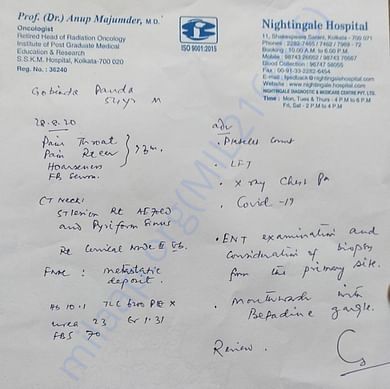 Prof. (Dr.) Anup Majumder, M.D.
Oncologist
Retired Head of Radiation Oncology
Institute of Post Graduate Medical
Education & Research
S.S.K.M. Hospital, Kolkata-700 020
Reg. No. : 36240
ISO 9001:2015
Nightingale Hospital
11, Shakespeare Sarani, Kolkata - 700 071
Phone : 2282-7465 / 7462 / 7969 - 72
Booking : 10.00 A.M. to 6.00 P.M.
Mobile : 98743 26662 / 98743 76667
Blood Collection : 98747 58055
Fax : 00-91-33-2282-6454
E-mail : feedback@nightingalehospital.com
website : www.nightingalehospital.com
NIGHTINGALE DIAGNOSTIC & MEDICARE CENTRE PVT. LTD.
Time : Mon, Tues & Thurs - 4 P.M to 6 P.M
Fri, Sat - 2 P.M to 4 P.M
Gobinda Panda
54yr M
28.8.20
Pain Throat
Pain Rt ear
Hoarseness
CT Neck:
Rt
and Pyriform Sinus
Rt Cervical node II
FNAC : metastatic
deposit.
Hb 10.1 TLC 6200
urea 23 Cr 1.31
FBS 70
adv
• Platelet count
• LFT
• X ray Chest PA
• Covid -19
• ENT examination and
consideration of biopsy
from the primary site.
• Mouthwash with
Betadine gargle.
Review.